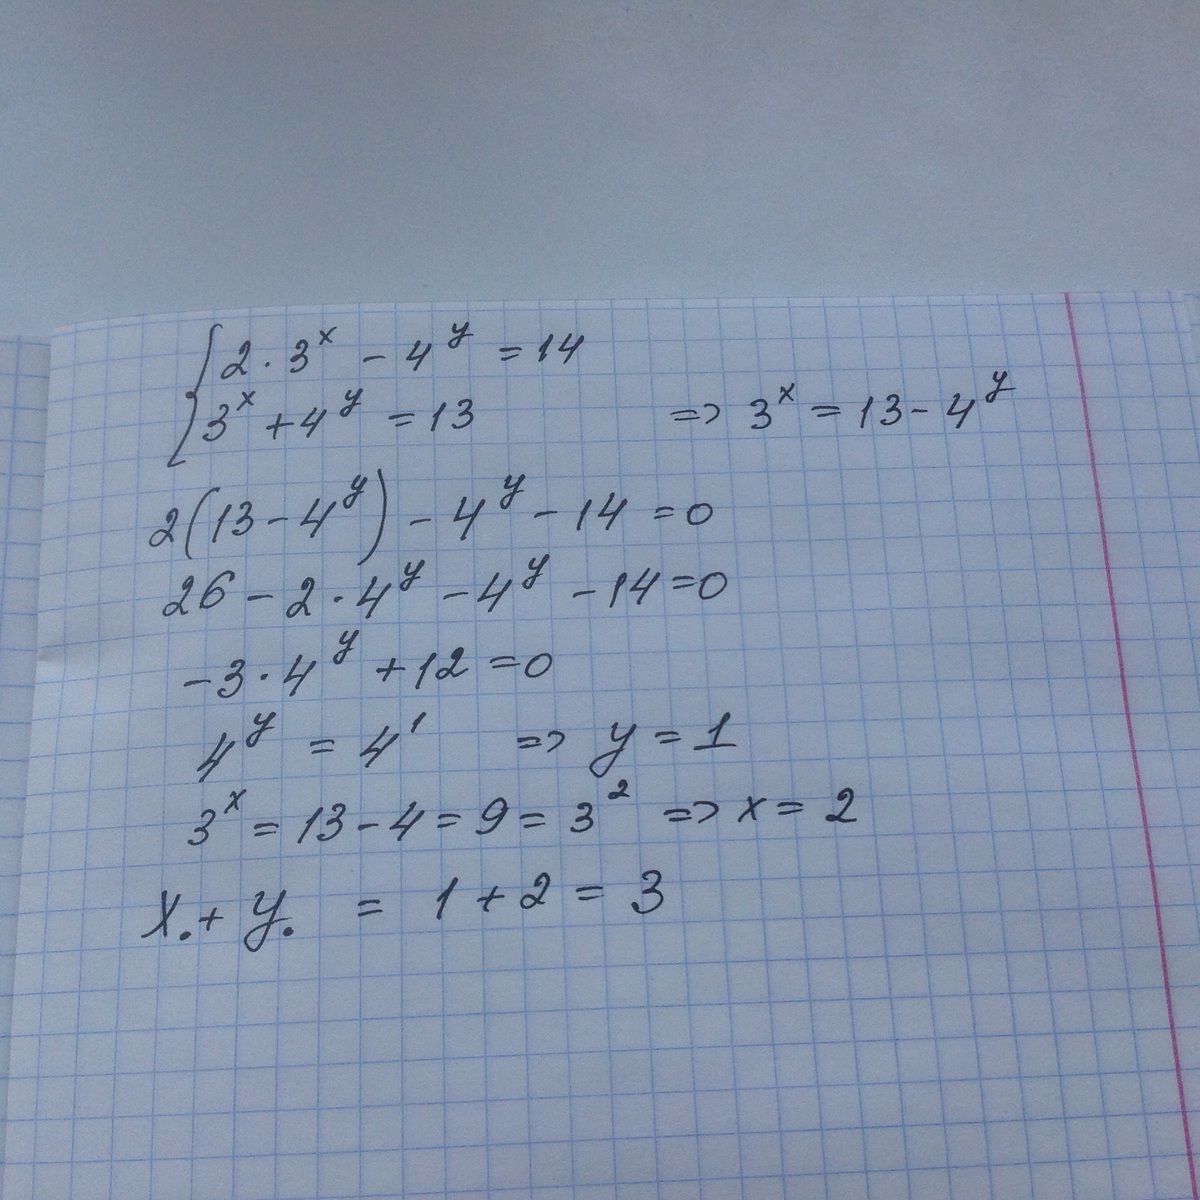 {2 · 3^x - 4^y = 14
3^x + 4^y = 13 => 3^x = 13 - 4^y
2(13 - 4^y) - 4^y - 14 = 0
26 - 2 · 4^y - 4^y - 14 = 0
-3 · 4^y + 12 = 0
4^y = 4^1 => y = 1
3^x = 13 - 4 = 9 = 3^2 => x = 2
x. + y. = 1 + 2 = 3